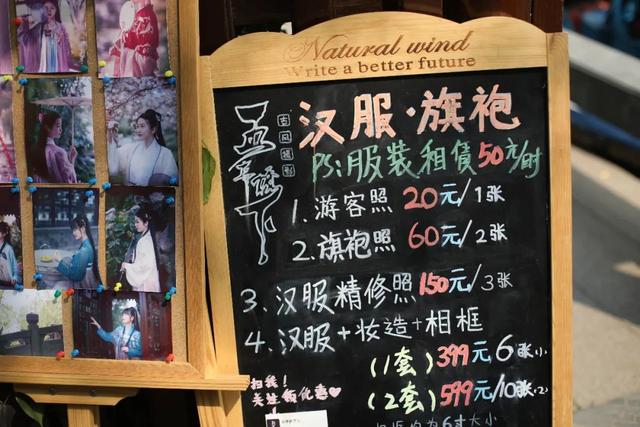 Natural wind
Write a better future
汉服·旗袍
PS:服装租賃50元/时
1.游客照 20元/1张
2.旗袍照 60元/2张
3.汉服精修照150元/3张
4.汉服+妆造+相框
(1套)399元 6张
(2套)599元/10张
扫我!
关注领优惠